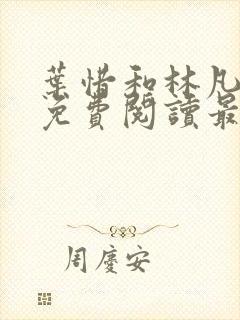 葉惜和林凡
免費閱讀最
周慶安